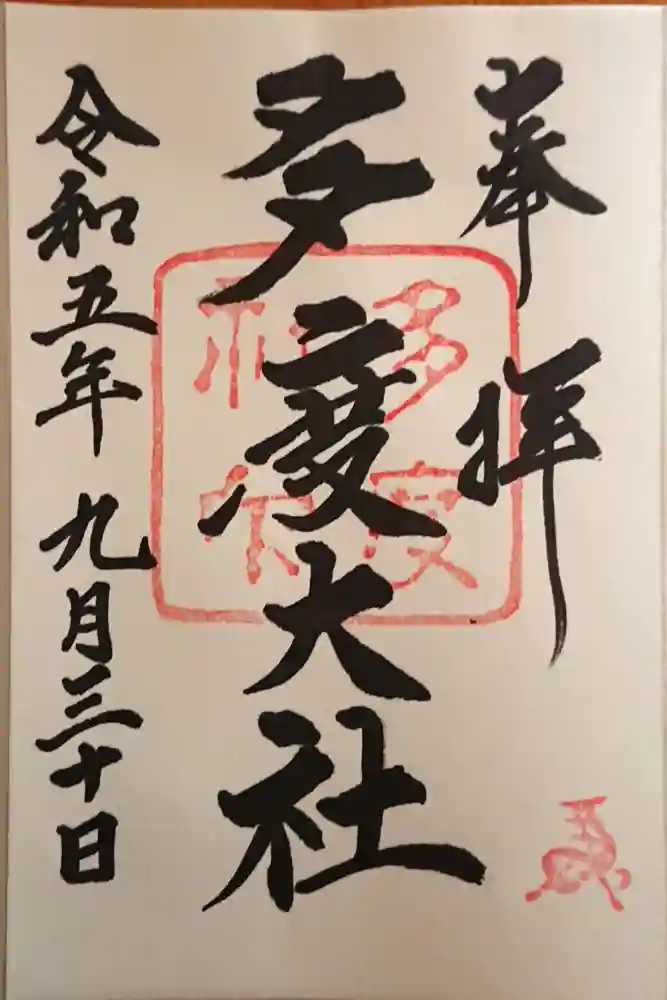 奉拝
多度大社
令和五年九月三十日
多度
神宮